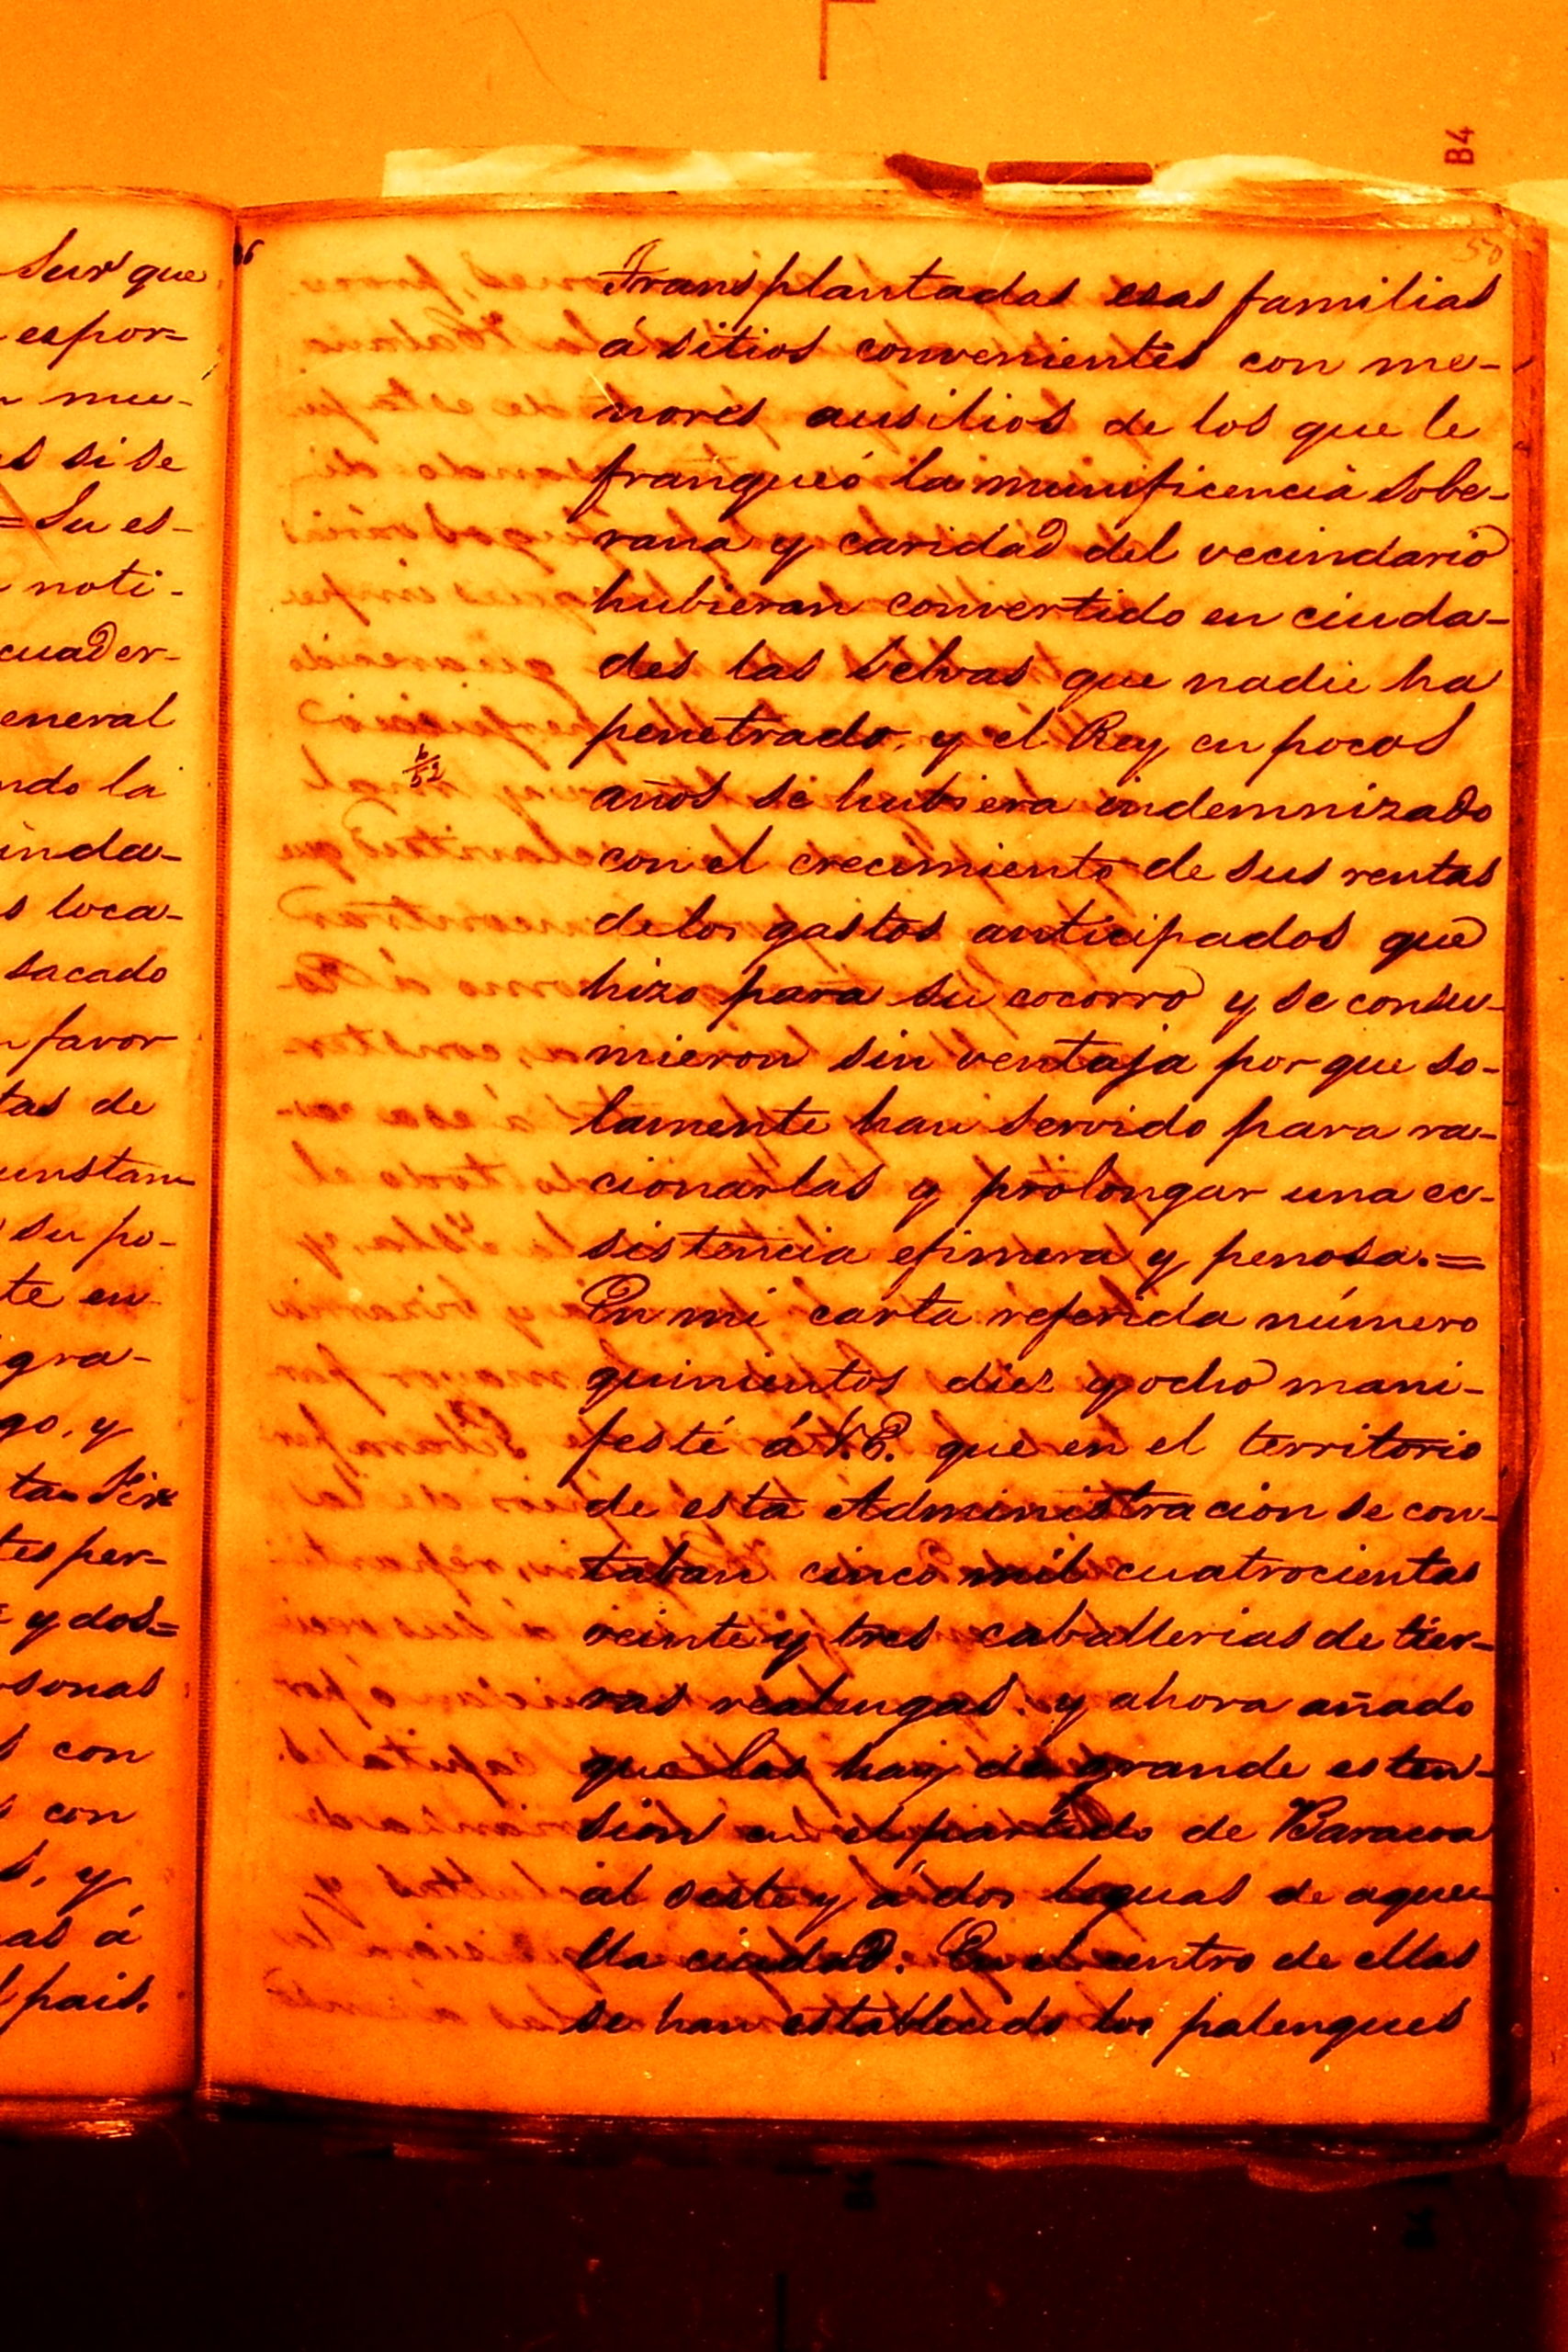 B4
50
Sur que
espor-
mu-
s si se
= Su es-
noti-
cuader-
eneral
ndo la
unda-
s loca-
sacado
favor
tas de
unstan-
su po-
te en
gra-
go, y
tes per-
y dos=
sonas
s con
s con
s, y
as á
pais.
Transplantadas esas familias
á sitios convenientes con me-
nores ausilios de los que le
franqueó la munificencia sobe-
rana y caridad del vecindario
hubieran convertido en ciuda-
des las selvas que nadie ha
penetrado, y el Rey en pocos
años se hubiera indemnizado
con el crecimiento de sus rentas
de los gastos anticipados que
hizo para su cocorro y se consu-
mieron sin ventaja porque so-
lamente han servido para ra-
cionarlas y prolongar una ec-
sistencia efimera y penosa.=
En mi carta referida número
quinientos diez y ocho mani-
festé á V.E. que en el territorio
de esta Administracion se con-
taban cinco mil cuatrocientas
veinte y tres caballerias de tier-
ras realengas. y ahora añado
que las hay de grande esten-
sion en el partido de Baracoa
al oeste y á dos leguas de aque-
lla ciudad. En el centro de ellas
se han establecido los palenques